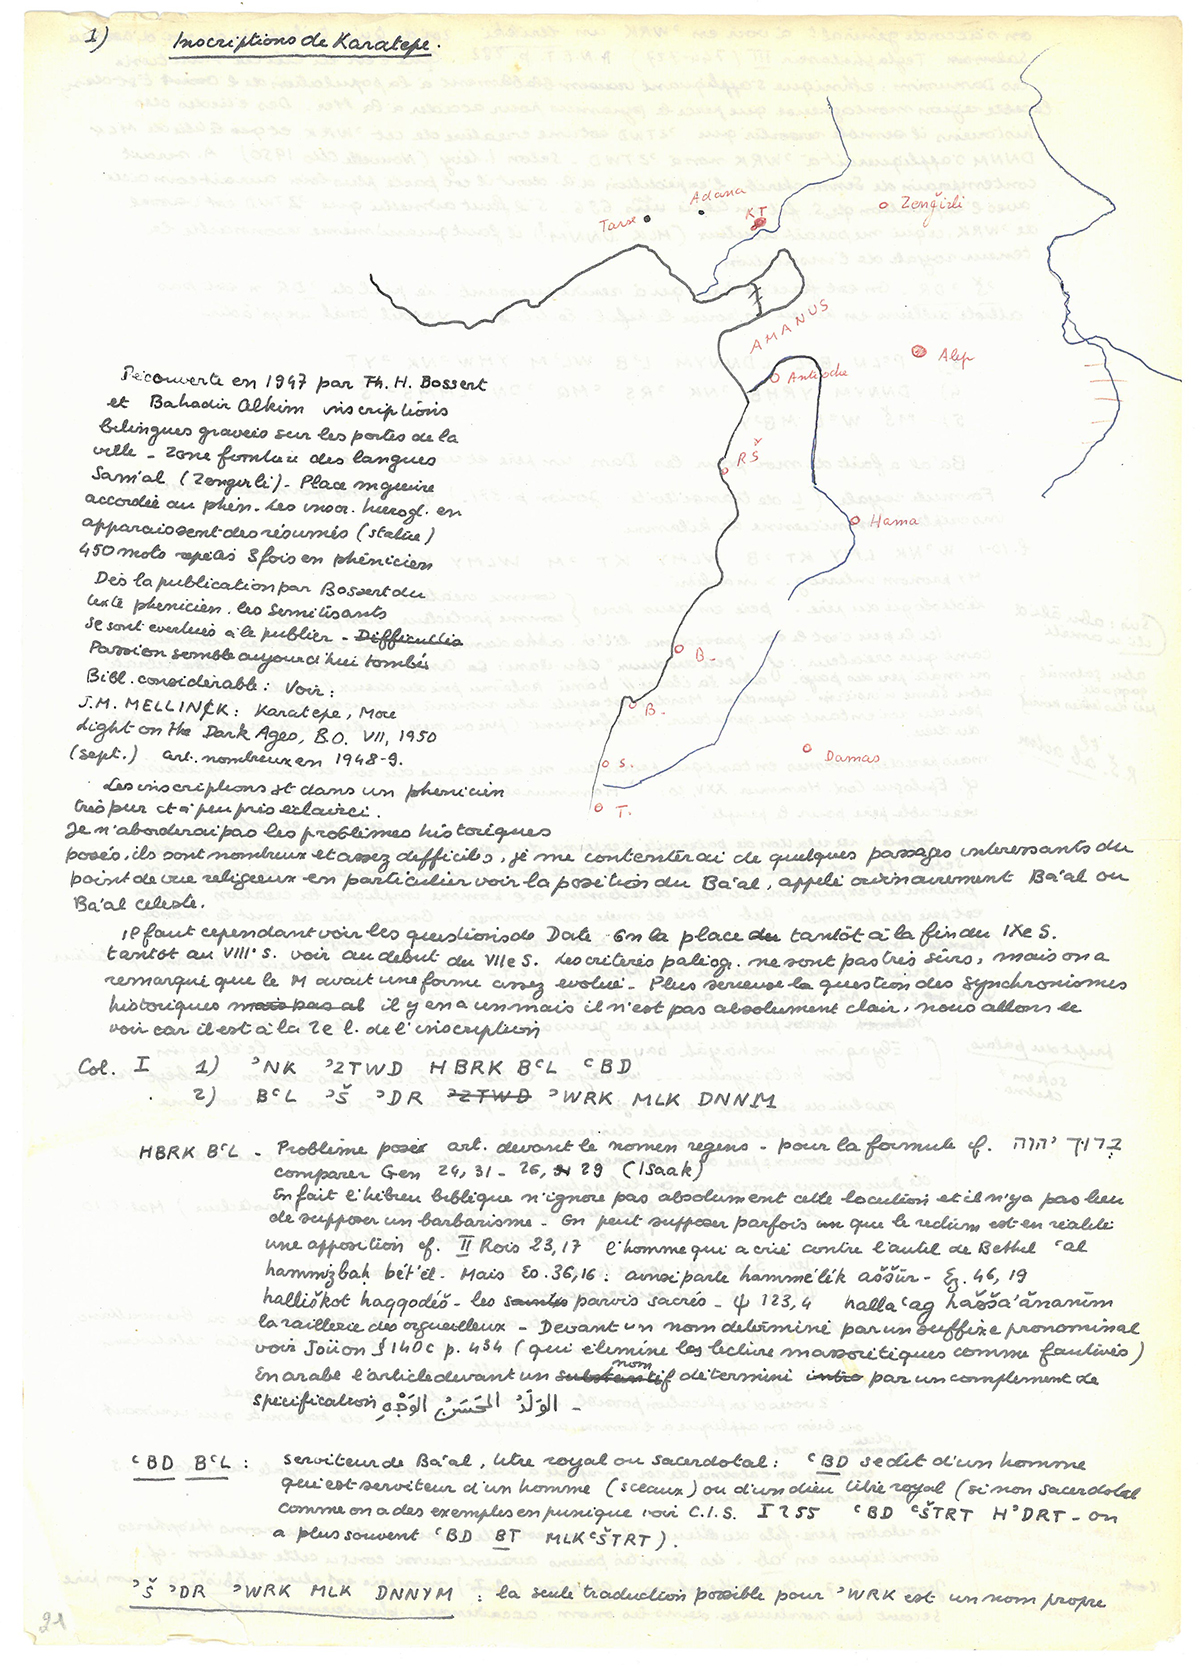 1) Inscriptions de Karatepe.
Tarse
Adana
KT
Zenǧirli
AMANUS
Alep
Antioche
RŠ
Hama
B.
B.
Damas
S.
T.
Découverte en 1947 par Th. H. Bossert
et Bahadir Alkim inscriptions
bilingues gravées sur les portes de la
ville - Zone frontière des langues
Sam'al (Zengerli) - Place majeure
accordée au phén. Les inscr. hierogl. en
apparaissent des résumés (statue)
450 mots répétés 3 fois en phénicien
Dès la publication par Bossert du
texte phénicien. les Sémitisants
se sont évertués à le publier - Difficultés
Passion semble aujourd'hui tombée
Bibl. considérable : Voir :
J.M. MELLINCK : Karatepe, More
Light on the Dark Ages, B.O. VII, 1950
(sept.) art. nombreux en 1948-9.
Les inscriptions st dans un phénicien
très pur et à peu près éclairci.
Je n'aborderai pas les problèmes historiques
posés, ils sont nombreux et assez difficiles, je me contenterai de quelques passages intéressants du
point de vue religieux en particulier voir la position du Ba'al, appelé ordinairement Ba'al ou
Ba'al céleste.
Il faut cependant voir les questions de Date On la place du tantôt à la fin du IXe S.
tantôt au VIII° S. voir au début du VIIe S. Les critères paléogr. ne sont pas très sûrs, mais on a
remarqué que le M avait une forme assez évoluée - Plus sérieuse la question des synchronismes
historiques mais pas al il y en a un mais il n'est pas absolument clair, nous allons le
voir car il est à la 2e l. de l'inscription
Col. I 1) ʾNK ʾZTWD HBRK BʿL ʿBD
2) BʿL ʾŠ ʾDR ʾZTWD ʾWRK MLK DNNYM
HBRK BʿL - Problème posé art. devant le nomen regens - pour la formule cf. ברוך יהוה
comparer Gen 24, 31 - 26, 29 (Isaak)
En fait l'hébreu biblique n'ignore pas absolument cette locution et il n'y a pas lieu
de supposer un barbarisme - On peut supposer parfois que le rectum est en réalité
une apposition cf. II Rois 23,17 l'homme qui a crié contre l'autel de Bethel ʿal
hammizbaḥ bét'él. Mais Es. 36,16 : ainsi parle hammélék aššūr - Ez. 46, 19
halliškot haqqodéš - les saints parvis sacrés - ψ 123,4 hallaʿag hašša'ănanīm
la raillerie des orgueilleux - Devant un nom déterminé par un suffixe pronominal
voir Joüon § 140c p. 434 (qui élimine les lecture massorétiques comme fautives)
En arabe l'article devant un substantif nom déterminé intro par un complément de
spécification الوَلَدُ الحَسَنُ الوَجْهِ -
ʿBD BʿL : serviteur de Ba'al, titre royal ou sacerdotal : ʿBD se dit d'un homme
qui est serviteur d'un homme (sceaux) ou d'un dieu titre royal (sinon sacerdotal
comme on a des exemples en punique voir C.I.S. I 255 ʿBD ʿŠTRT HʾDRT - on
a plus souvent ʿBD BT MLKʿŠTRT).
ʾŠ ʾDR ʾWRK MLK DNNYM : la seule traduction possible pour ʾWRK est un nom propre
21